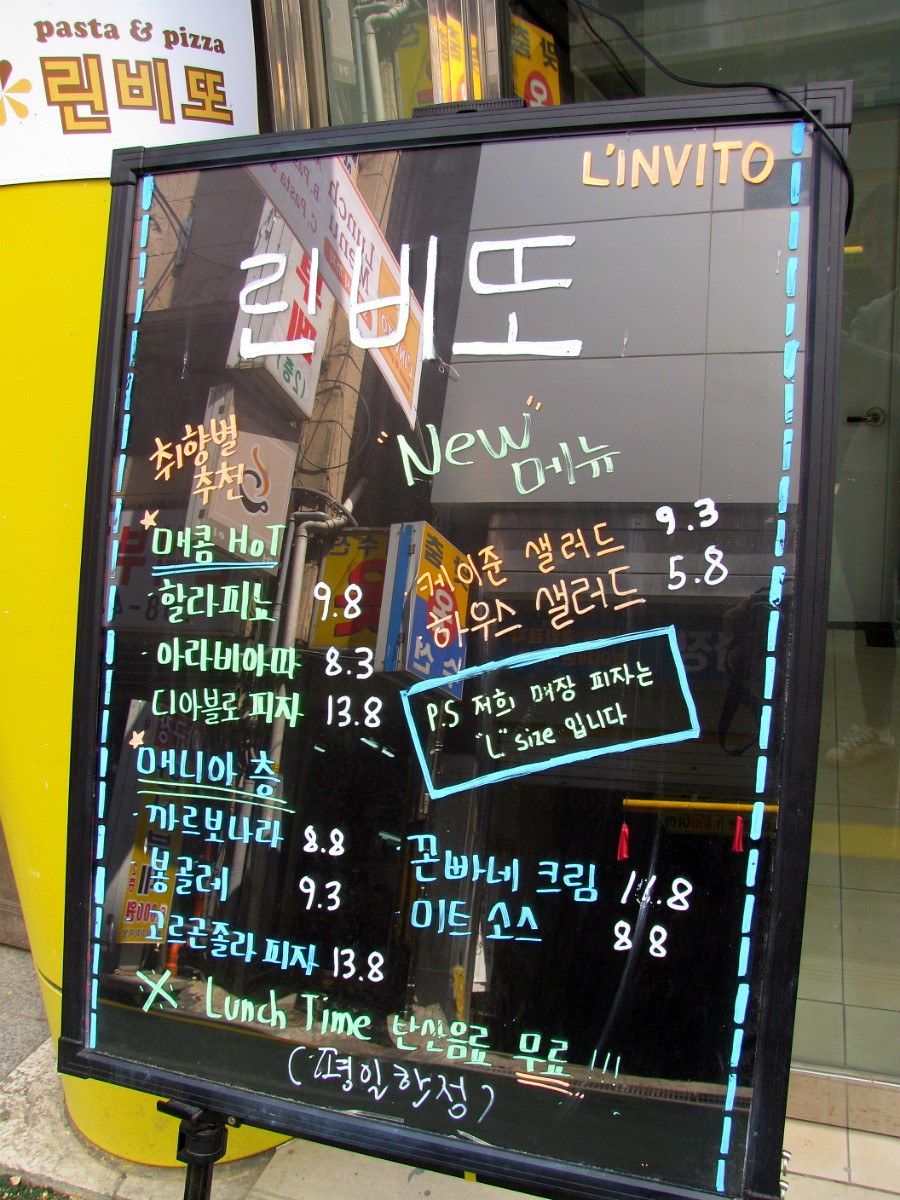 pasta & pizza
린비또
L'INVITO
린비또
취향별
추천
"New"
메뉴
매콤 HoT
할라피뇨 9.8
아라비아따 8.3
디아블로 피자 13.8
케이준 샐러드 9.3
하우스 샐러드 5.8
P.S 저희 매장 피자는
"L" size 입니다
매니아 층
까르보나라 8.8
봉골레 9.3
고르곤졸라 피자 13.8
꼰빠네 크림 11.8
미트 소스 8.8
※ Lunch Time 탄산음료 무료 !!!
(평일한정)